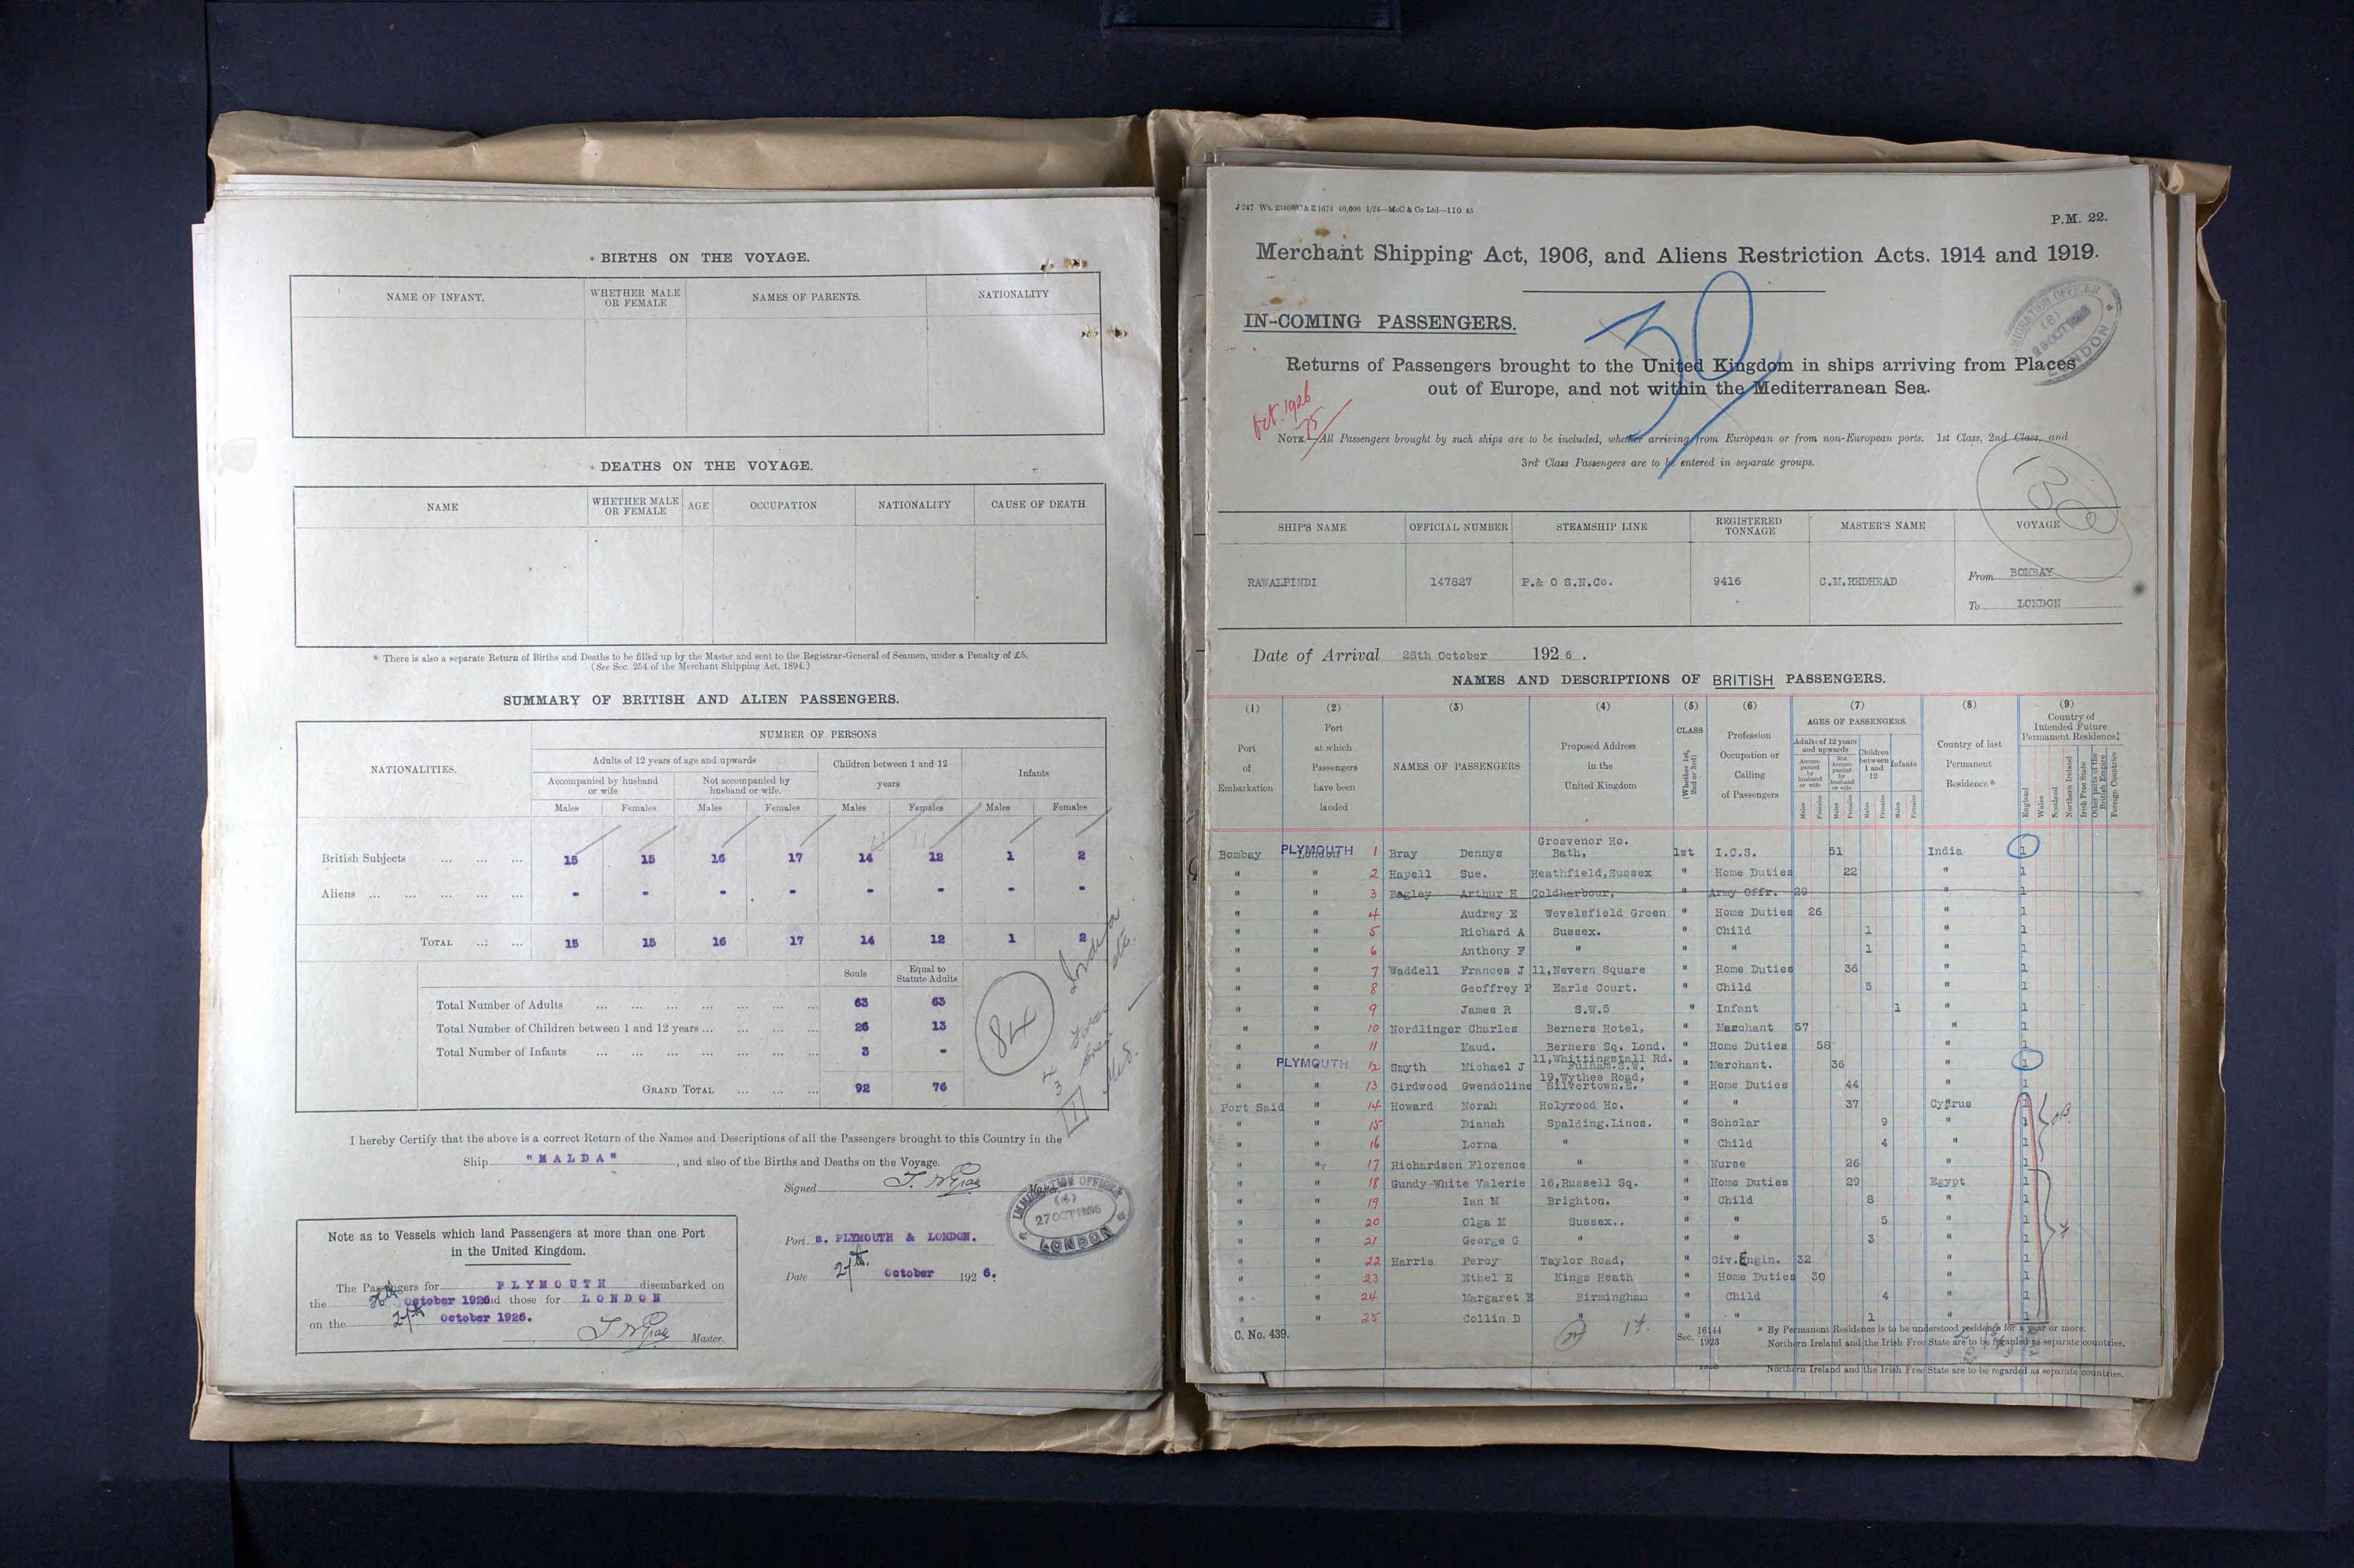 * BIRTHS ON THE VOYAGE.
NAME OF INFANT.
WHETHER MALE OR FEMALE
NAMES OF PARENTS.
NATIONALITY
* DEATHS ON THE VOYAGE.
NAME
WHETHER MALE OR FEMALE
AGE
OCCUPATION
NATIONALITY
CAUSE OF DEATH
* There is also a separate Return of Births and Deaths to be filled up by the Master and sent to the Registrar-General of Seamen, under a Penalty of £5.
(See Sec. 254 of the Merchant Shipping Act, 1894.)
SUMMARY OF BRITISH AND ALIEN PASSENGERS.
NATIONALITIES.
NUMBER OF PERSONS
Adults of 12 years of age and upwards
Children between 1 and 12 years
Infants
Accompanied by husband or wife
Not accompanied by husband or wife.
Males Females Males Females Males Females Males Females
British Subjects ... ... ... 15 15 16 17 14 12 1 2
Aliens ... ... ... ... ... - - - - - - - -
TOTAL ... ... 15 15 16 17 14 12 1 2
Souls
Equal to Statute Adults
Total Number of Adults ... 63 63
Total Number of Children between 1 and 12 years ... 26 13
Total Number of Infants ... 3 -
GRAND TOTAL ... 92 76
84
I hereby Certify that the above is a correct Return of the Names and Descriptions of all the Passengers brought to this Country in the
Ship "MALDA", and also of the Births and Deaths on the Voyage.
Signed Master.
IMMIGRATION OFFICER
(4)
27 OCT 1926
LONDON
Note as to Vessels which land Passengers at more than one Port
in the United Kingdom.
The Passengers for PLYMOUTH disembarked on
the 26th October 1926 and those for LONDON
on the 27th October 1926.
Master.
Port s. PLYMOUTH & LONDON.
Date 27th. October 1926.
P.M. 22.
Merchant Shipping Act, 1906, and Aliens Restriction Acts. 1914 and 1919.
30
IN-COMING PASSENGERS.
IMMIGRATION OFFICER
(8)
LONDON
Returns of Passengers brought to the United Kingdom in ships arriving from Places
out of Europe, and not within the Mediterranean Sea.
Oct. 1926
75
NOTE.—All Passengers brought by such ships are to be included, whether arriving from European or from non-European ports. 1st Class, 2nd Class, and
3rd Class Passengers are to be entered in separate groups.
138
SHIP'S NAME
OFFICIAL NUMBER
STEAMSHIP LINE
REGISTERED TONNAGE
MASTER'S NAME
VOYAGE
RAWALPINDI 147827 P.& O S.N.Co. 9416 C.M.REDHEAD
From BOMBAY
To LONDON
Date of Arrival 28th October 1926.
NAMES AND DESCRIPTIONS OF BRITISH PASSENGERS.
(1) (2) (3) (4) (5) (6) (7) (8) (9)
Port of Embarkation
Port at which Passengers have been landed
NAMES OF PASSENGERS
Proposed Address in the United Kingdom
CLASS (Whether 1st, 2nd or 3rd)
Profession Occupation or Calling of Passengers
AGES OF PASSENGERS.
Adults of 12 years and upwards
Accompanied by husband or wife
Not Accompanied by husband or wife
Children between 1 and 12
Infants
Males Females Males Females Males Females Males Females
Country of last Permanent Residence *
Country of Intended Future Permanent Residence‡
England
Wales
Scotland
Northern Ireland
Irish Free State
Other parts of the British Empire
Foreign Countries
Bombay London PLYMOUTH 1 Bray Dennys Grosvenor Ho. Bath, 1st I.C.S. 51 India 1
" " 2 Hapell Sue. Heathfield,Sussex " Home Duties 22 " 1
" " 3 Bagley Arthur H Coldharbour, " Army Offr. 29 " 1
" " 4 Audrey E Wevelsfield Green " Home Duties 26 " 1
" " 5 Richard A Sussex. " Child 1 " 1
" " 6 Anthony F " " " 1 " 1
" " 7 Waddell Frances J 11,Nevern Square " Home Duties 36 " 1
" " 8 Geoffrey P Earls Court. " Child 5 " 1
" " 9 James R S.W.5 " Infant 1 " 1
" " 10 Nordlinger Charles Berners Hotel, " Merchant 57 " 1
" " 11 Maud. Berners Sq. Lond. " Home Duties 58 " 1
" PLYMOUTH 12 Smyth Michael J 11,Whittingstall Rd. Fulham.S.W. " Merchant. 36 " 1
" " 13 Girdwood Gwendoline 19,Wythes Road, Silvertown.E. " Home Duties 44 " 1
Port Said " 14 Howard Norah Holyrood Ho. " " 37 Cyprus 1
" " 15 Dianah Spalding.Lincs. " Scholar 9 " 1
" " 16 Lorna " " Child 4 " 1
" " 17 Richardson Florence " " Nurse 26 " 1
" " 18 Gundy-White Valerie 16,Russell Sq. " Home Duties 29 Egypt 1
" " 19 Ian M Brighton. " Child 8 " 1
" " 20 Olga M Sussex.. " " 5 " 1
" " 21 George G " " " 3 " 1
" " 22 Harris Percy Taylor Road, " Civ.Engin. 32 " 1
" " 23 Ethel E Kings Heath " Home Duties 30 " 1
" " 24 Margaret E Birmingham " Child 4 " 1
" " 25 Collin D " " " 1 " 1
C. No. 439.
17.
Sec. 16144 1923
* By Permanent Residence is to be understood residence for a year or more.
Northern Ireland and the Irish Free State are to be regarded as separate countries.
Northern Ireland and the Irish Free State are to be regarded as separate countries.